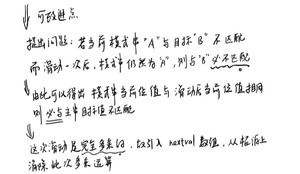 可改进点
提出问题：若当前模式中"A"与目标"B"不匹配
而滑动一次后，模式中仍然为"A"，则与"B"必不匹配
由此可以得出 模式中当前位值与滑动后当前位值相同
则 必与主串目标值不匹配
这次滑动是完全多余的，故引入 nextval 数组，从根源上
消除此次多余运算